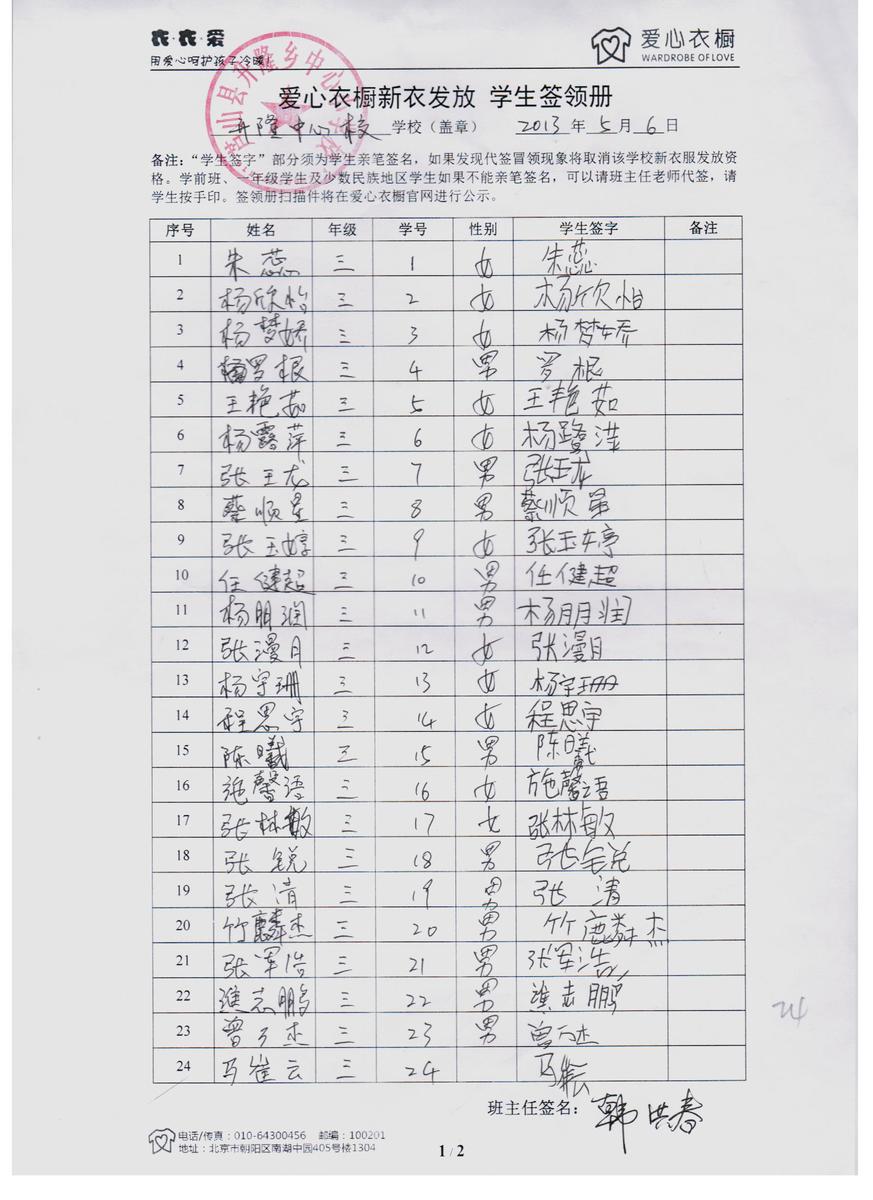 衣·衣·爱
用爱心呵护孩子冷暖!
爱心衣橱
WARDROBE OF LOVE
爱心衣橱新衣发放 学生签领册
升隆中心校 学校（盖章） 2013 年 5 月 6 日
备注：“学生签字”部分须为学生亲笔签名，如果发现代签冒领现象将取消该学校新衣服发放资
格。学前班、一年级学生及少数民族地区学生如果不能亲笔签名，可以请班主任老师代签，请
学生按手印。签领册扫描件将在爱心衣橱官网进行公示。
序号 姓名 年级 学号 性别 学生签字 备注
1 朱蕊 三 1 女 朱蕊
2 杨欣怡 三 2 女 杨欣怡
3 杨梦娇 三 3 女 杨梦娇
4 罗根 三 4 男 罗根
5 王艳茹 三 5 女 王艳茹
6 杨露萍 三 6 女 杨露萍
7 张玉龙 三 7 男 张玉龙
8 蔡顺星 三 8 男 蔡顺星
9 张玉婷 三 9 女 张玉婷
10 任健超 三 10 男 任健超
11 杨朋润 三 11 男 杨朋润
12 张漫月 三 12 女 张漫月
13 杨宇珊 三 13 女 杨宇珊
14 程思宇 三 14 女 程思宇
15 陈曦 三 15 男 陈曦
16 施馨语 三 16 女 施馨语
17 张林敏 三 17 女 张林敏
18 张锐 三 18 男 张锐
19 张清 三 19 男 张清
20 竹麟杰 三 20 男 竹麟杰
21 张军浩 三 21 男 张军浩
22 志鹏 三 22 男 志鹏
23 曾 杰 三 23 男 曾 杰
24 马 云 三 24 马
24
班主任签名： 韩洪春
电话/传真：010-64300456 邮编：100201
地址：北京市朝阳区南湖中园405号楼1304
1 / 2